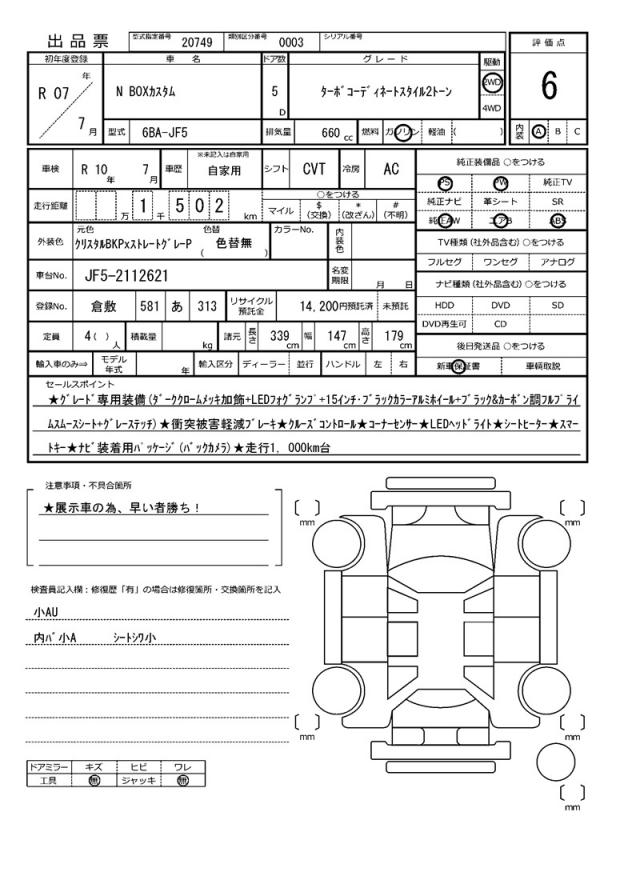 出品票 型式指定番号 20749 類別区分番号 0003 シリアル番号
評価点
6
内装 A B C
初年度登録 車名 ドア数 グレード 駆動
R 07 年 7 月
N BOXカスタム 5 D ターボコーディネートスタイル2トーン 2WD 4WD
型式 6BA-JF5 排気量 660 cc 燃料 ガソリン 軽油 ( )
車検 R 10 年 7 月 車歴 ※未記入は自家用 自家用 シフト CVT 冷房 AC
走行距離 万 1 千 5 0 2 km
○をつける
マイル $ (交換) * (改ざん) # (不明)
外装色 元色 色替
クリスタルBKPxストレートグレーP ( 色替無 )
カラーNo. 内装色
車台No. JF5-2112621 名変期限 月 日
登録No. 倉敷 581 あ 313 リサイクル預託金 14,200円預託済 未預託
定員 4( ) 人 積載量 kg 諸元 長さ 339 cm 幅 147 cm 高さ 179 cm
輸入車のみ⇒ モデル年式 年 輸入区分 ディーラー 並行 ハンドル 左 右
純正装備品 ○をつける
PS PW 純正TV
純正ナビ 革シート SR
純正AW エアB ABS
TV種類 (社外品含む) ○をつける
フルセグ ワンセグ アナログ
ナビ種類 (社外品含む) ○をつける
HDD DVD SD
DVD再生可 CD
後日発送品 ○をつける
新車保証書 車輌取説
セールスポイント
★グレード専用装備(ダーククロームメッキ加飾+LEDフォグランプ+15インチ・ブラックカラーアルミホイール+ブラック&カーボン調フルプライ
ムスムースシート+グレーステッチ)★衝突被害軽減ブレーキ★クルーズコントロール★コーナーセンサー★LEDヘッドライト★シートヒーター★スマー
トキー★ナビ装着用パッケージ(バックカメラ)★走行1,000km台
注意事項・不具合箇所
★展示車の為、早い者勝ち!
検査員記入欄:修復歴「有」の場合は修復箇所・交換箇所を記入
小AU
内バ小A シートシワ小
ドアミラー キズ ヒビ ワレ
工具 無 ジャッキ 無
mm
mm
mm
mm
mm